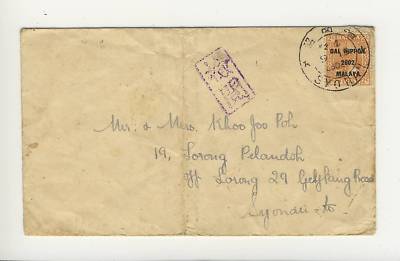 DAI NIPPON
2602
MALAYA
SYONAN
Mr. & Mrs. Khoo Joo Poh
19, Lorong Pelandoh
Off Lorong 29 Geylang Road
Syonan-to